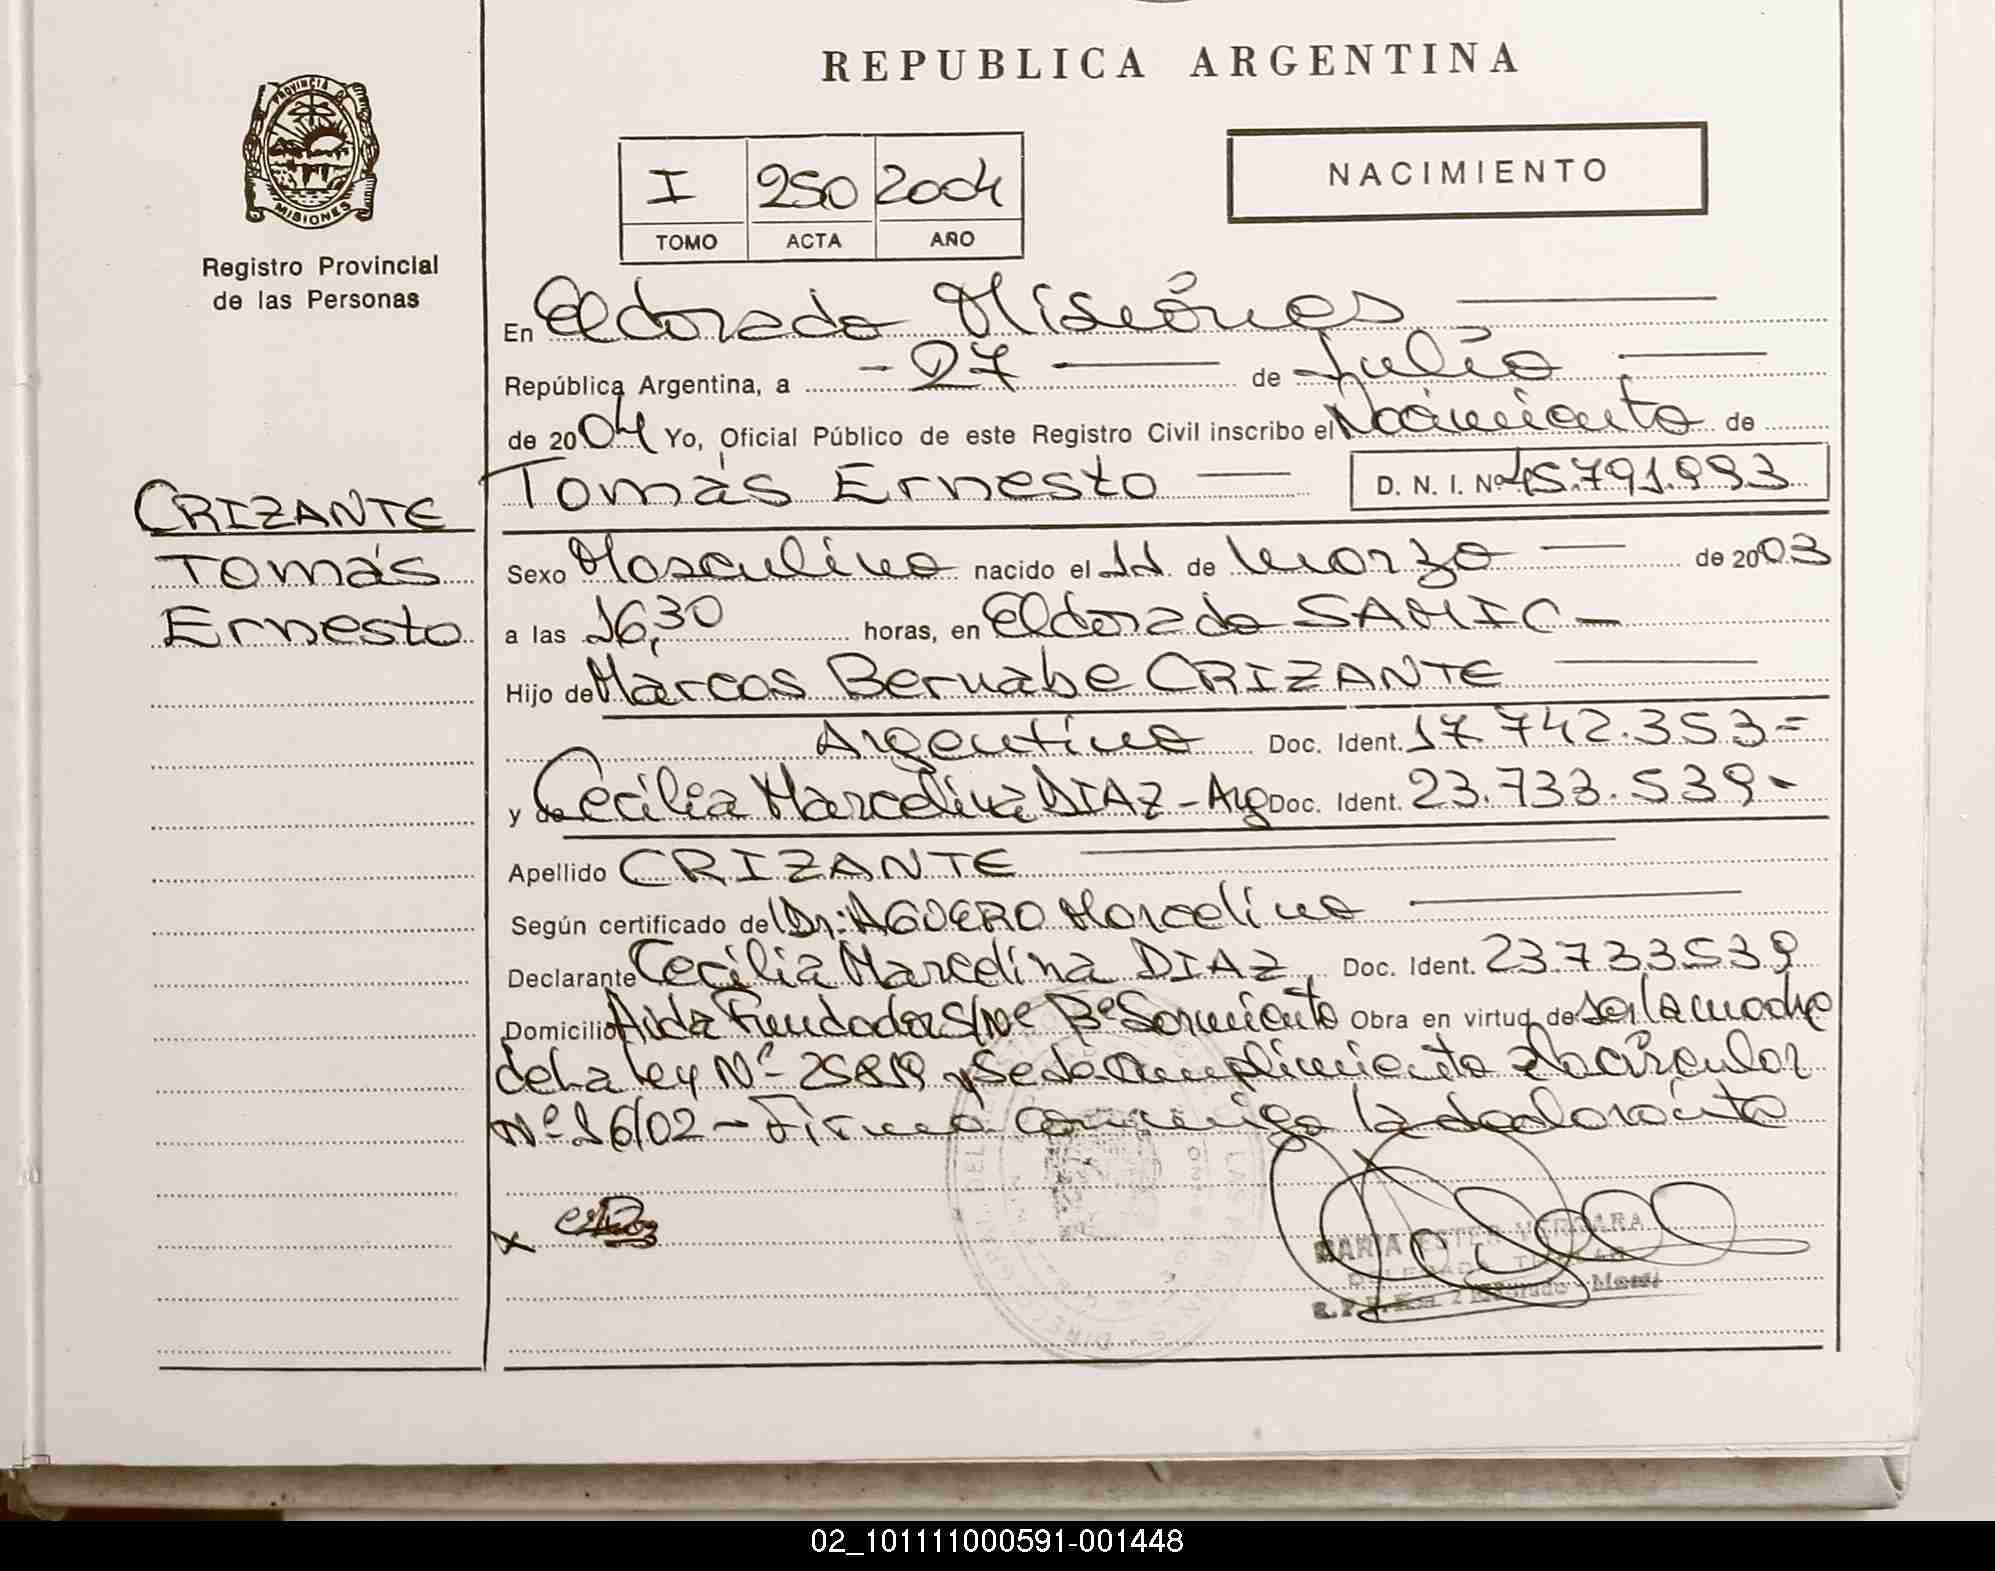 REPUBLICA ARGENTINA
PROVINCIA DE
MISIONES
Registro Provincial
de las Personas
I 250 2004
TOMO ACTA AÑO
NACIMIENTO
En Eldorado Misiones
República Argentina, a - 27 de Julio
de 2004 Yo, Oficial Público de este Registro Civil inscribo el Nacimiento de
Tomás Ernesto D. N. I. Nº 45.791.993
CRIZANTE
Tomás
Ernesto
Sexo Masculino nacido el 11 de Marzo de 2003
a las 16,30 horas, en Eldorado SAMIC -
Hijo de Marcos Bernabe CRIZANTE
Argentino Doc. Ident. 17.742.353=
y de Cecilia Marcelina DIAZ - Arg Doc. Ident. 23.733.539-
Apellido CRIZANTE
Según certificado del Dr: AGUERO Marcelino
Declarante Cecilia Marcelina DIAZ Doc. Ident. 23.733.539
Domicilio Aida Fundadors/Nº Bº Sarmiento Obra en virtud de ser la madre
de La ley Nº 25819 y se da cumplimiento a la circular
Nº 16/02 - Firma conmigo la declarante
x
MARIA ESTER VERGARA
DELEGADA TITULAR
02_101111000591-001448